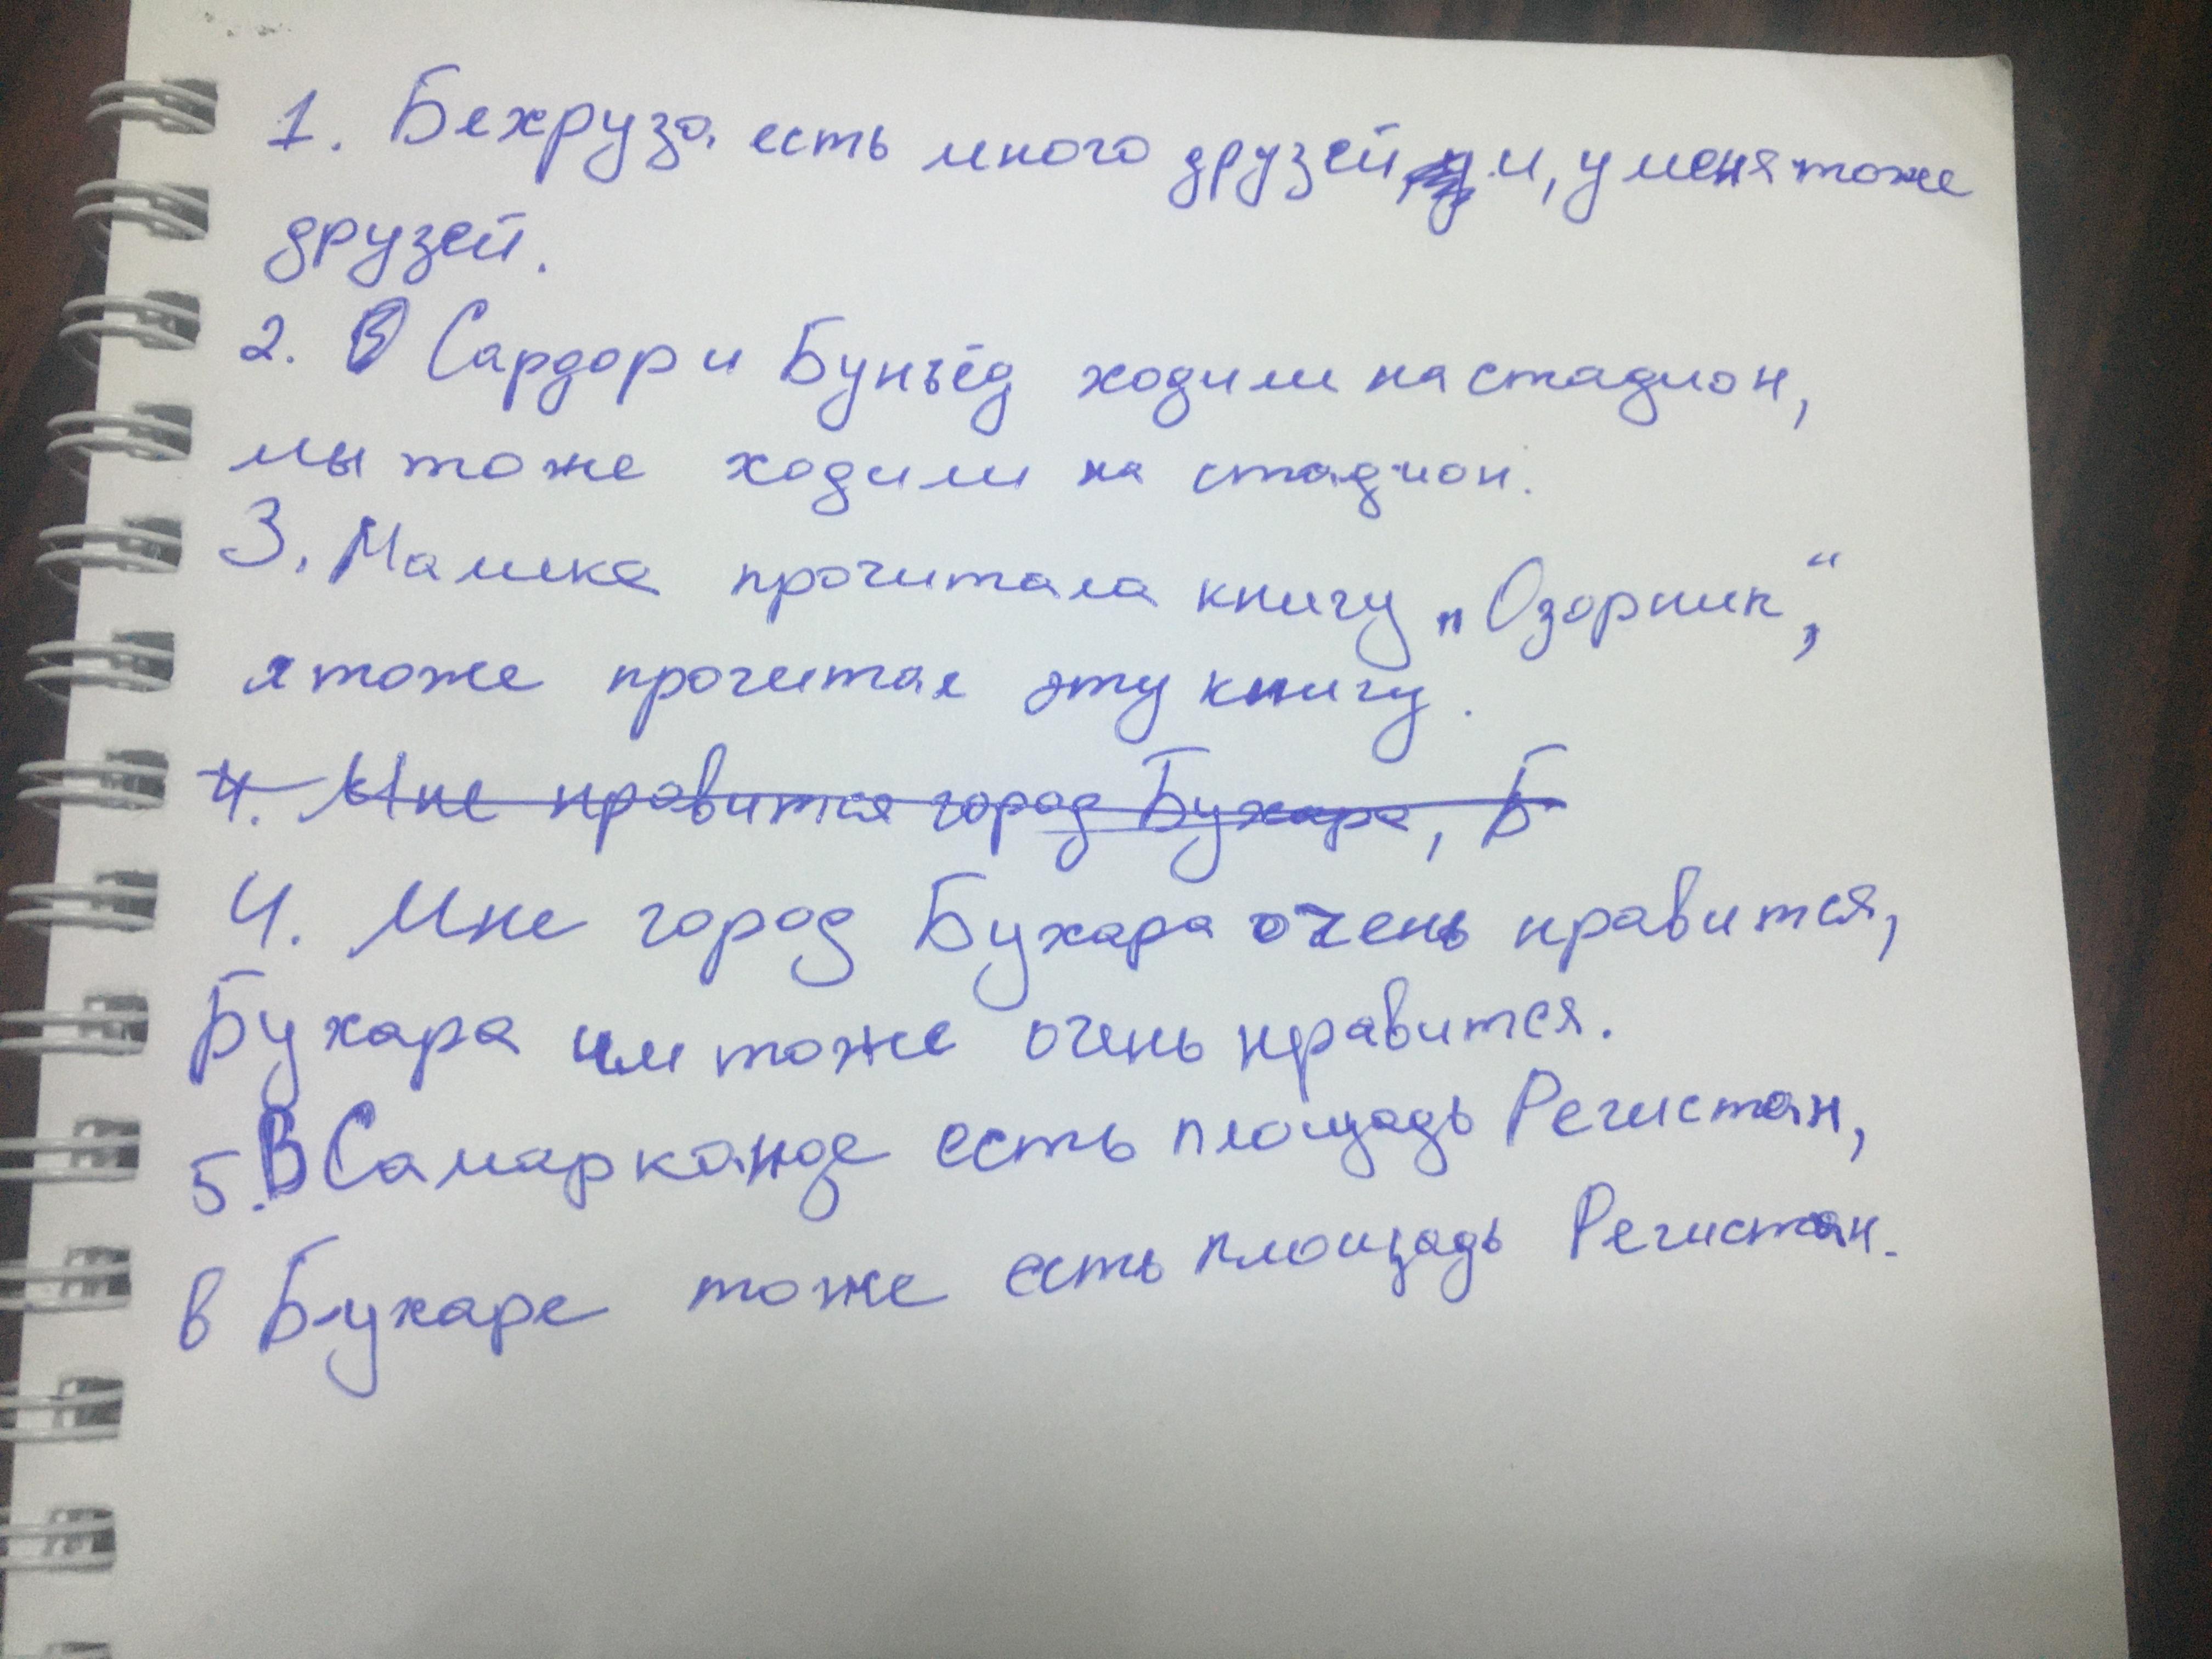 1. Бехруза есть много друзей, и, у меня тоже
друзей.
2. В Сардор и Бунъёд ходили на стадион,
мы тоже ходили на стадион.
3. Малика прочитала книгу „Озорник“,
я тоже прочитал эту книгу.
4. Мне нравится город Бухара, Б
4. Мне город Бухара очень нравится,
Бухара им тоже очень нравится.
5. В Самарканде есть площадь Регистан,
в Бухаре тоже есть площадь Регистан.